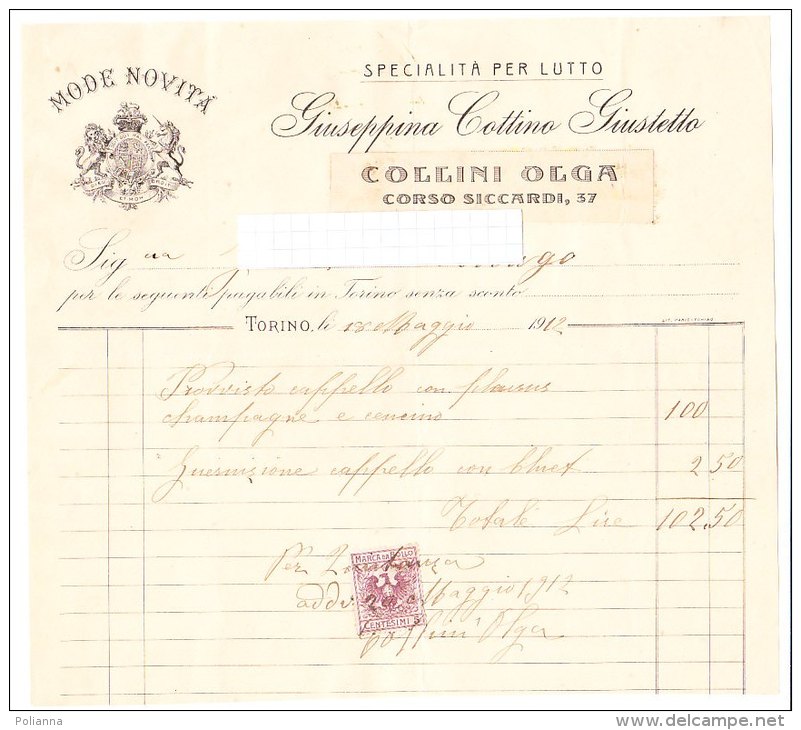 MODE NOVITÁ
SPECIALITÀ PER LUTTO
Giuseppina Cottino Giustetto
COLLINI OLGA
CORSO SICCARDI, 37
Sig na
per le seguenti pagabili in Torino senza sconto
TORINO, li 18 Maggio 1912
LIT. PARIS-TORINO
Provvisto cappello con
champagne e cencino 100
Guernizione cappello con bluet 2 50
Totale Lire 102.50
Per Quitanza
MARCA DA BOLLO
addi Maggio 1912
CENTESIMI 5
Collini Olga
Polianna
www.delcampe.net